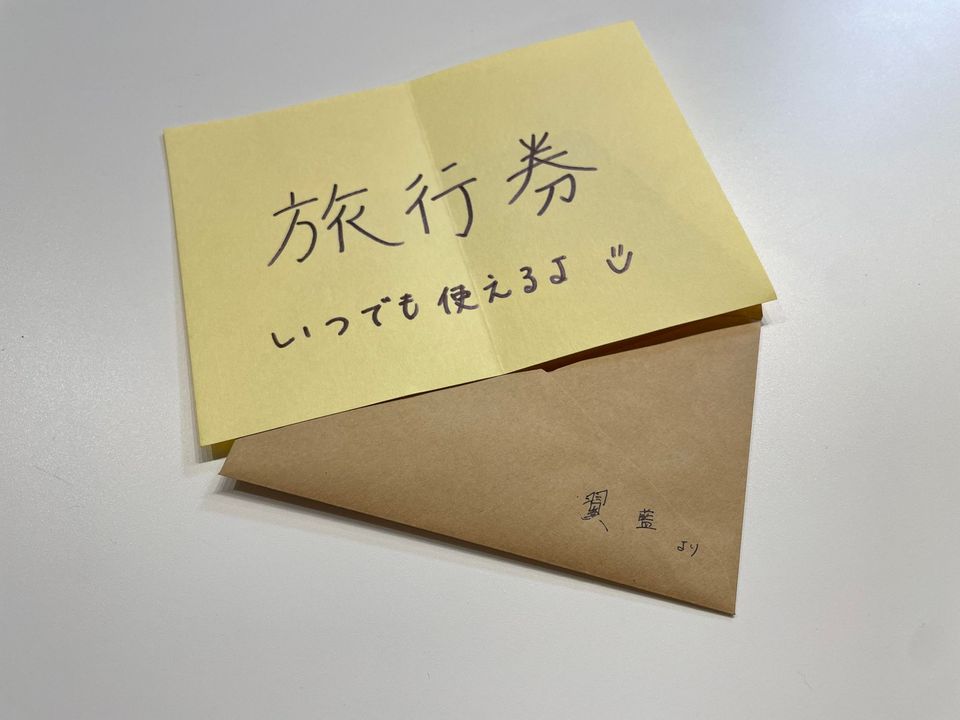 旅行券
いつでも使えるよ
翼、藍
より